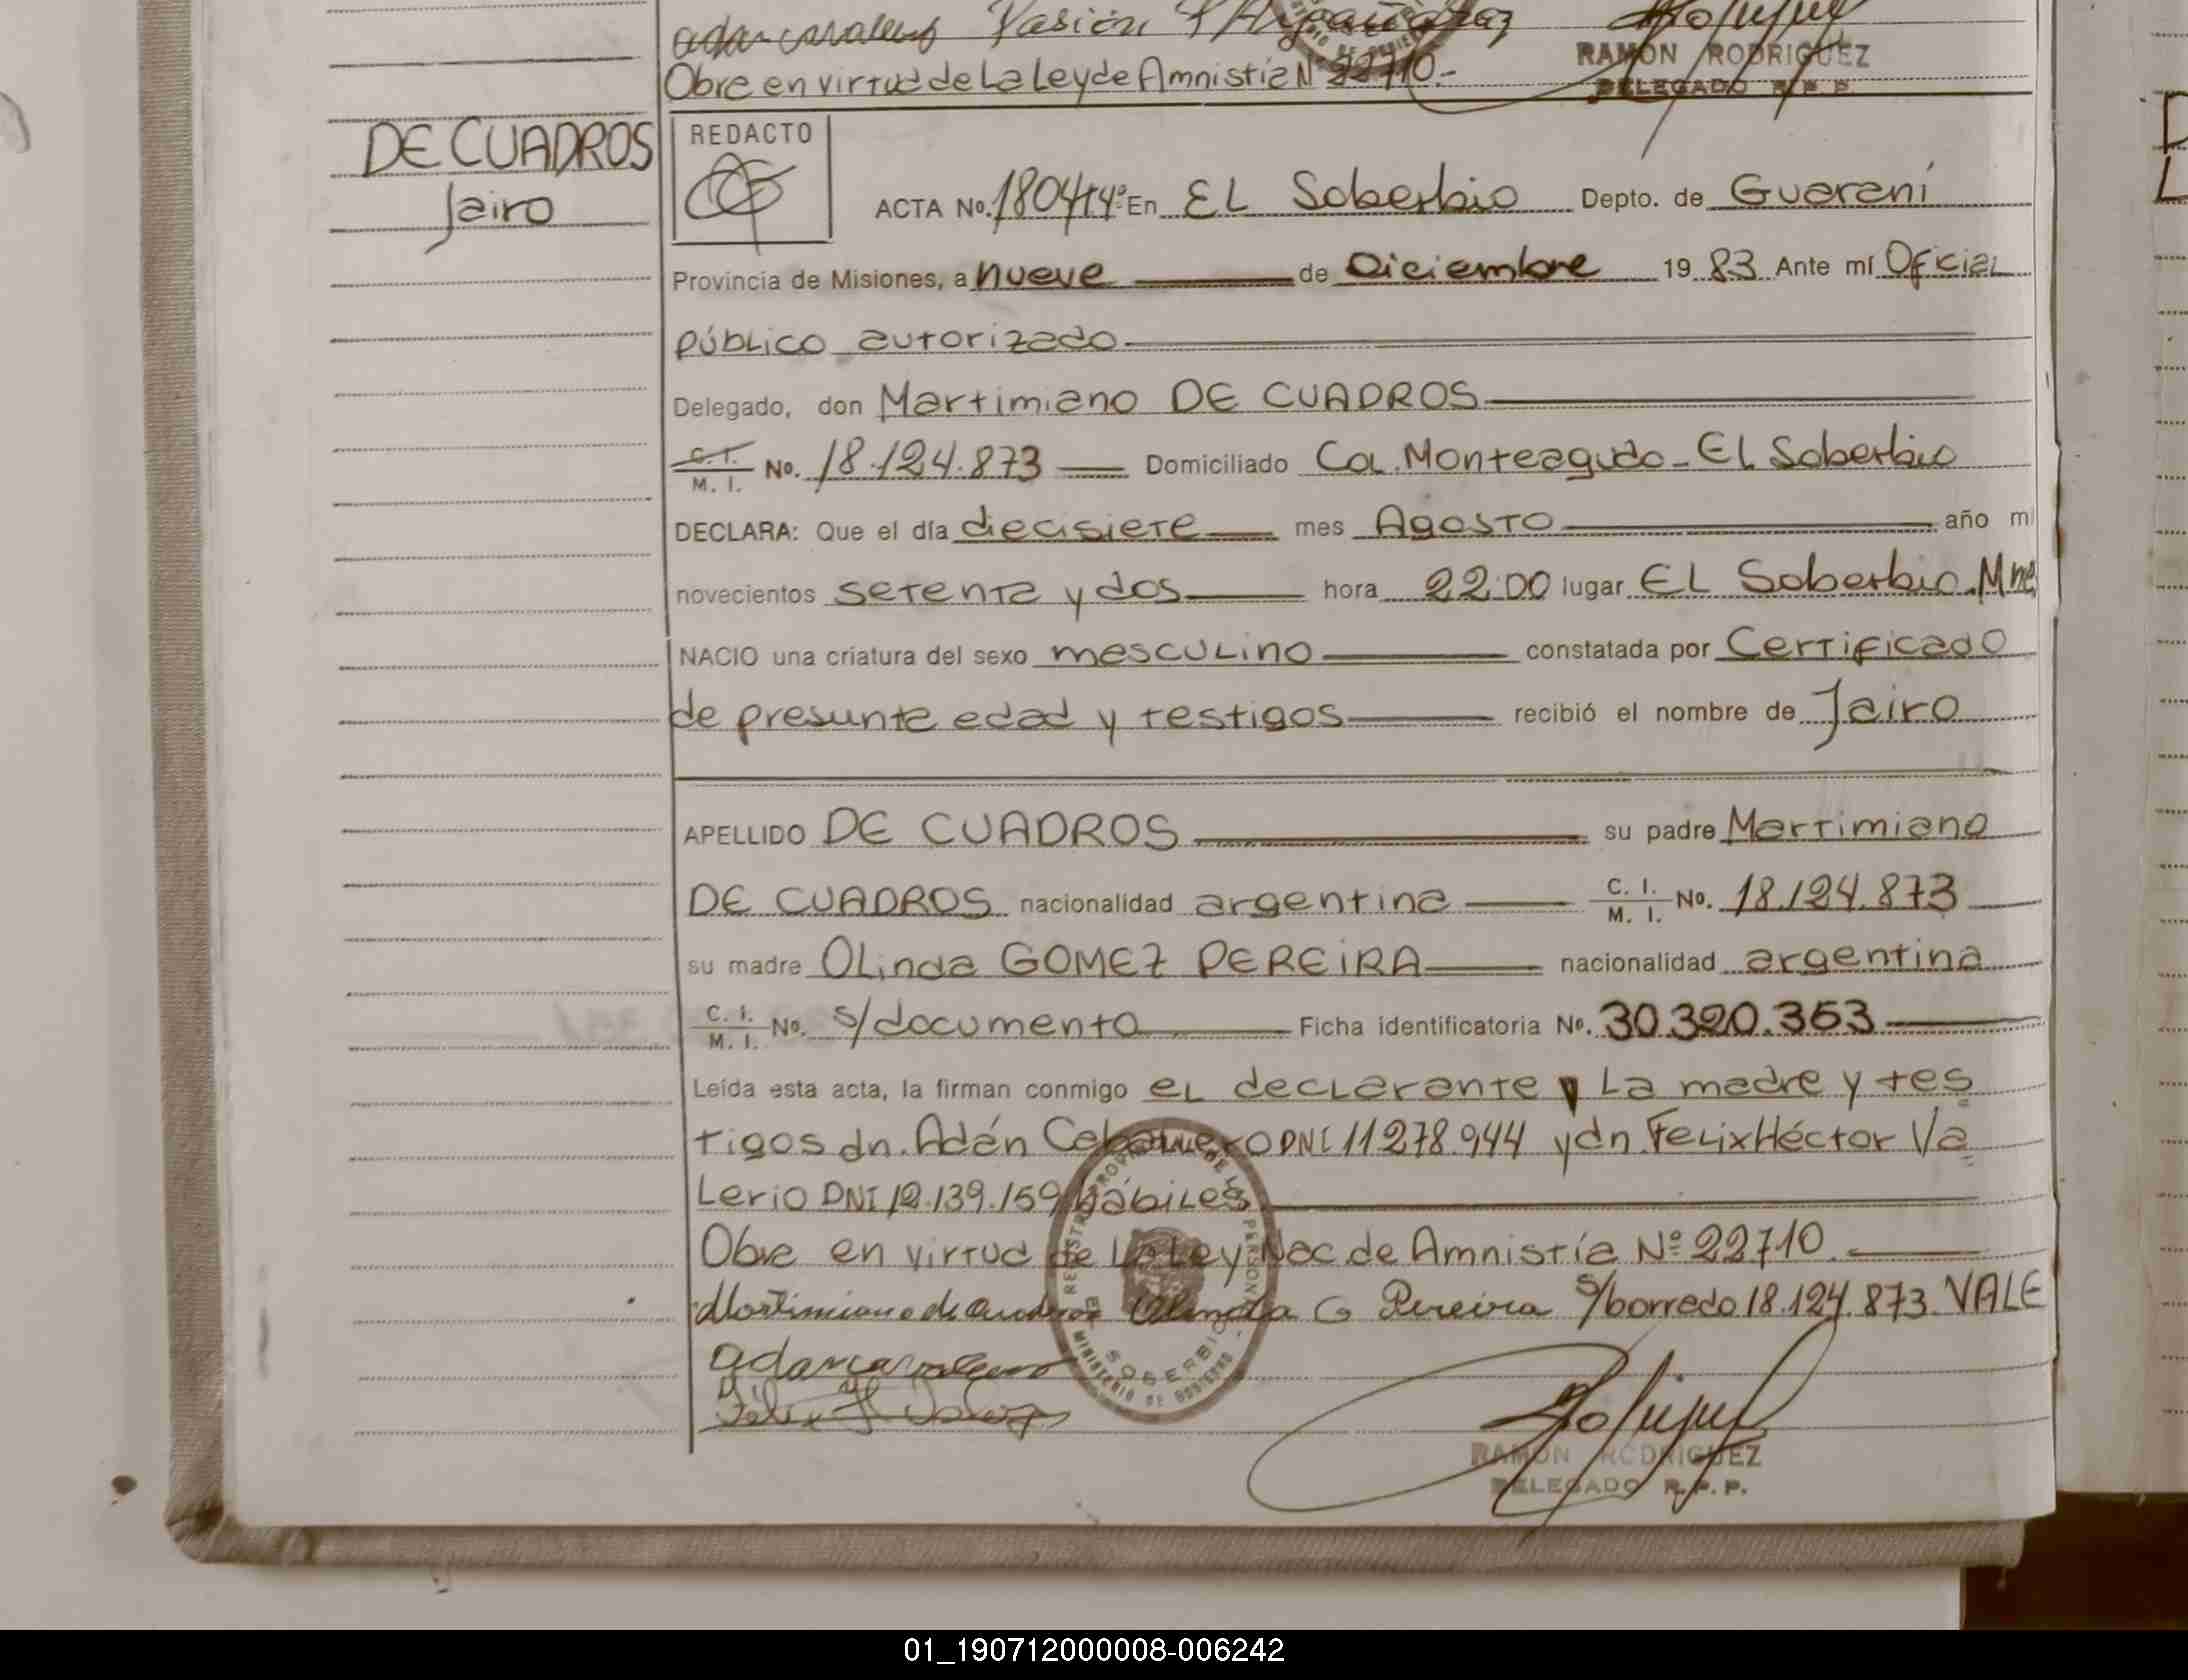 Obre en virtud de La Ley de Amnistía Nº 22710.-
RAMON RODRIGUEZ
DELEGADO R. P. P.
DE CUADROS
Jairo
REDACTO
ACTA No. 1804 t4º En EL Soberbio Depto. de Guaraní
Provincia de Misiones, a nueve de Diciembre 19 83 Ante mí Oficial
público autorizado
Delegado, don Martimiano DE CUADROS
C. I. M. I. No. 18.124.873 Domiciliado Col. Monteagudo - EL Soberbio
DECLARA: Que el día diecisiete mes Agosto año mi
novecientos setenta y dos hora 22:00 lugar EL Soberbio. Mnes
NACIO una criatura del sexo masculino constatada por Certificado
de presunta edad y testigos recibió el nombre de Jairo
APELLIDO DE CUADROS su padre Martimiano
DE CUADROS nacionalidad argentina C. I. M. I. No. 18.124.873
su madre Olinda GOMEZ PEREIRA nacionalidad argentina
C. I. M. I. No. s/documento Ficha identificatoria No. 30.320.353
Leída esta acta, la firman conmigo el declarante y La madre y tes
tigos dn. Adán Caballero DNI 11.278.944 y dn. Felix Héctor Va
lerio DNI 12.139.159 hábiles
Obre en virtud de La Ley Nac. de Amnistía Nº 22710.
Martimiano de Cuadros Olinda G Pereira s/borrado 18.124.873. VALE
RAMON RODRIGUEZ
DELEGADO R. P. P.
SOBERBIO
MINISTERIO DE GOBIERNO
01_190712000008-006242